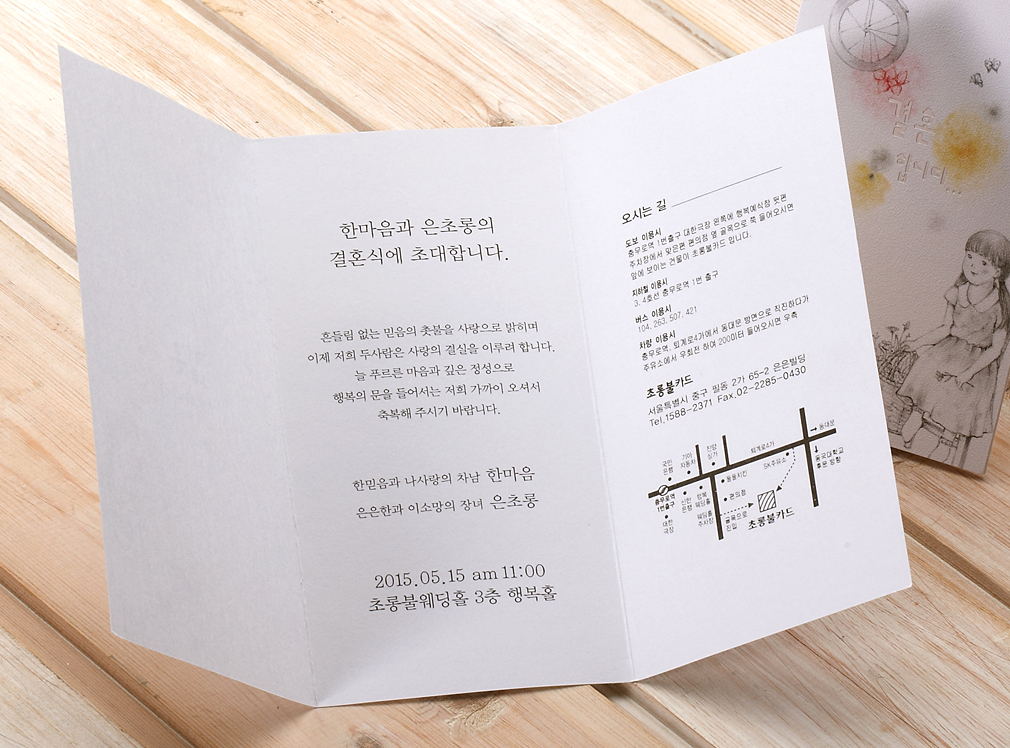 한마음과 은초롱의
결혼식에 초대합니다.
흔들림 없는 믿음의 촛불을 사랑으로 밝히며
이제 저희 두사람은 사랑의 결실을 이루려 합니다.
늘 푸르른 마음과 깊은 정성으로
행복의 문을 들어서는 저희 가까이 오셔서
축복해 주시기 바랍니다.
한믿음과 나사랑의 차남 한마음
은은한과 이소망의 장녀 은초롱
2015.05.15 am 11:00
초롱불웨딩홀 3층 행복홀
오시는 길
도보 이용시
충무로역 1번출구 대한극장 왼쪽에 행복예식장 뒷편
주차장에서 맞은편 편의점 옆 골목으로 쭉 들어오시면
앞에 보이는 건물이 초롱불카드 입니다.
지하철 이용시
3. 4호선 충무로역 1번 출구
버스 이용시
104. 263. 507. 421
차량 이용시
충무로역. 퇴계로4가에서 동대문 방면으로 직진하다가
주유소에서 우회전 하여 200미터 들어오시면 우측
초롱불카드
서울특별시 중구 필동 2가 65-2 은은빌딩
Tel.1588-2371 Fax.02-2285-0430
국민
은행
기아
자동차
진양
상가
퇴계로5가
동대문
SK주유소
동국대학교
후문 방향
충무로역
1번출구
신한
은행
행복
웨딩홀
둘둘치킨
편의점
대한
극장
웨딩홀
주차장
골목으로
진입
초롱불카드
결혼
합니다...